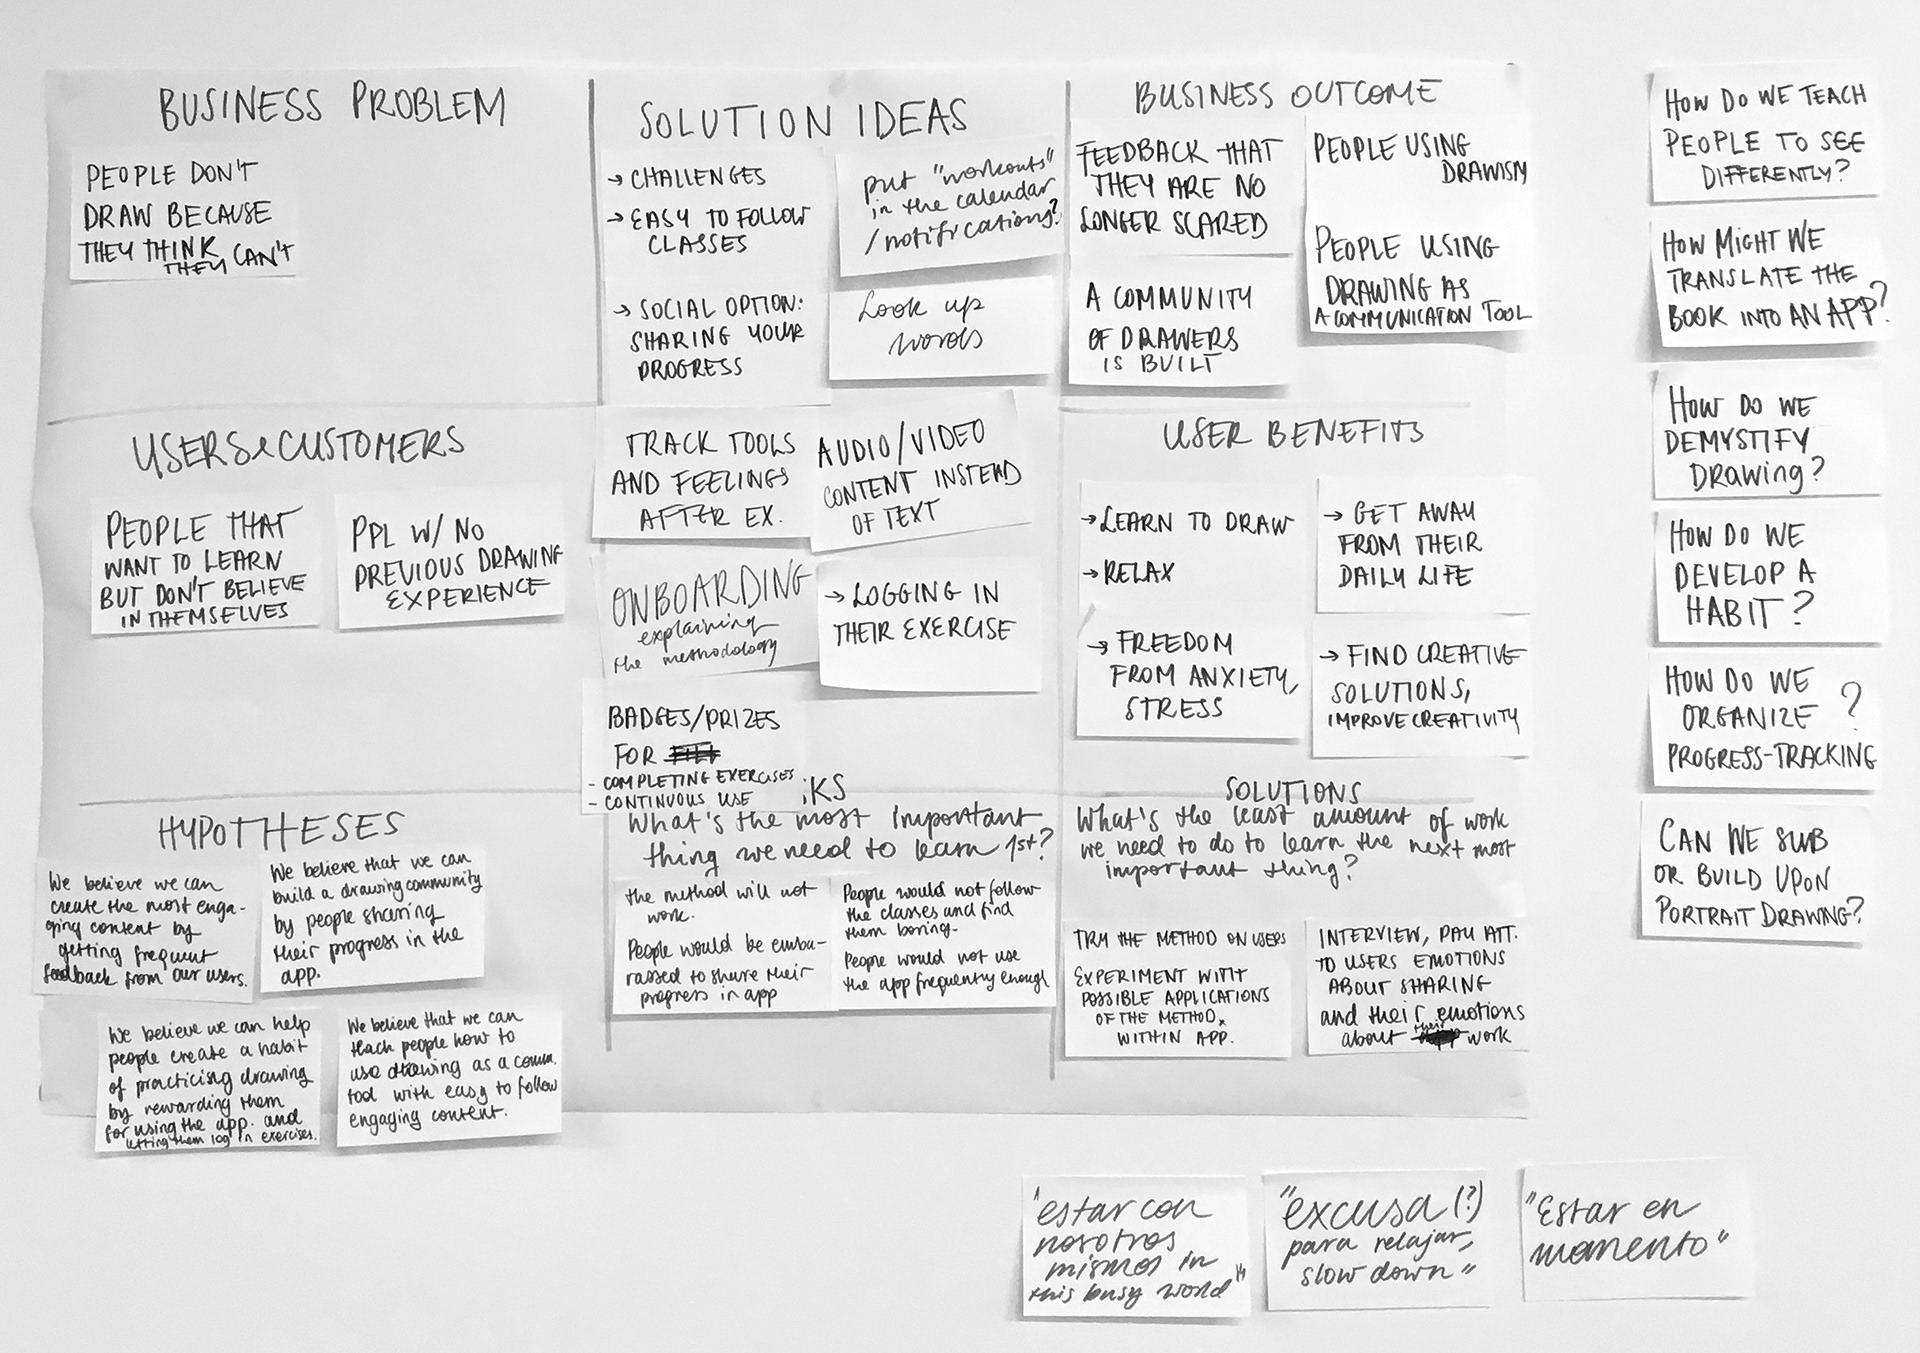 BUSINESS PROBLEM
PEOPLE DON'T
DRAW BECAUSE
THEY THINK
THEY CAN'T
USERS & CUSTOMERS
PEOPLE THAT
WANT TO LEARN
BUT DON'T BELIEVE
IN THEMSELVES
PPL W/ NO
PREVIOUS DRAWING
EXPERIENCE
HYPOTHESES
We believe we can
create the most enga-
ging content by
getting frequent
feedback from our users.
We believe that we can
build a drawing community
by people sharing
their progress in the
app.
We believe we can help
people create a habit
of practicing drawing
by rewarding them
for using the app. and
letting them log in exercises.
We believe that we can
teach people how to
use drawing as a comm.
tool with easy to follow
engaging content.
SOLUTION IDEAS
→ CHALLENGES
→ EASY TO FOLLOW
CLASSES
→ SOCIAL OPTION:
SHARING YOUR
PROGRESS
put "workouts"
in the calendar
/notifications?
Look up
words
TRACK TOOLS
AND FEELINGS
AFTER EX.
AUDIO/VIDEO
CONTENT INSTEAD
OF TEXT
ONBOARDING
explaining
the methodology
→ LOGGING IN
THEIR EXERCISE
BADGES/PRIZES
FOR
- COMPLETING EXERCISES
- CONTINUOUS USE
KS
What's the most important
thing we need to learn 1st?
the method will not
work.
People would be emba-
rassed to share their
progress in app
People would not follow
the classes and find
them boring.
People would not use
the app frequently enough
BUSINESS OUTCOME
FEEDBACK THAT
THEY ARE NO
LONGER SCARED
PEOPLE USING
DRAWISM
A COMMUNITY
OF DRAWERS
IS BUILT
PEOPLE USING
DRAWING AS
A COMMUNICATION TOOL
USER BENEFITS
→ LEARN TO DRAW
→ RELAX
→ GET AWAY
FROM THEIR
DAILY LIFE
→ FREEDOM
FROM ANXIETY,
STRESS
→ FIND CREATIVE
SOLUTIONS,
IMPROVE CREATIVITY
SOLUTIONS
What's the least amount of work
we need to do to learn the next most
important thing?
TRY THE METHOD ON USERS
EXPERIMENT WITH
POSSIBLE APPLICATIONS
OF THE METHOD
WITHIN APP.
INTERVIEW, PAY ATT.
TO USERS EMOTIONS
ABOUT SHARING
and their emotions
about their work
HOW DO WE TEACH
PEOPLE TO SEE
DIFFERENTLY?
HOW MIGHT WE
TRANSLATE THE
BOOK INTO AN APP?
HOW DO WE
DEMYSTIFY
Drawing?
HOW DO WE
DEVELOP A
HABIT?
HOW DO WE
ORGANIZE ?
PROGRESS-TRACKING
CAN WE SUB
OR BUILD UPON
PORTRAIT DRAWING?
"estar con
nosotros
mismos in
this busy world"
"excusa (?)
para relajar,
slow down"
"Estar en
momento"